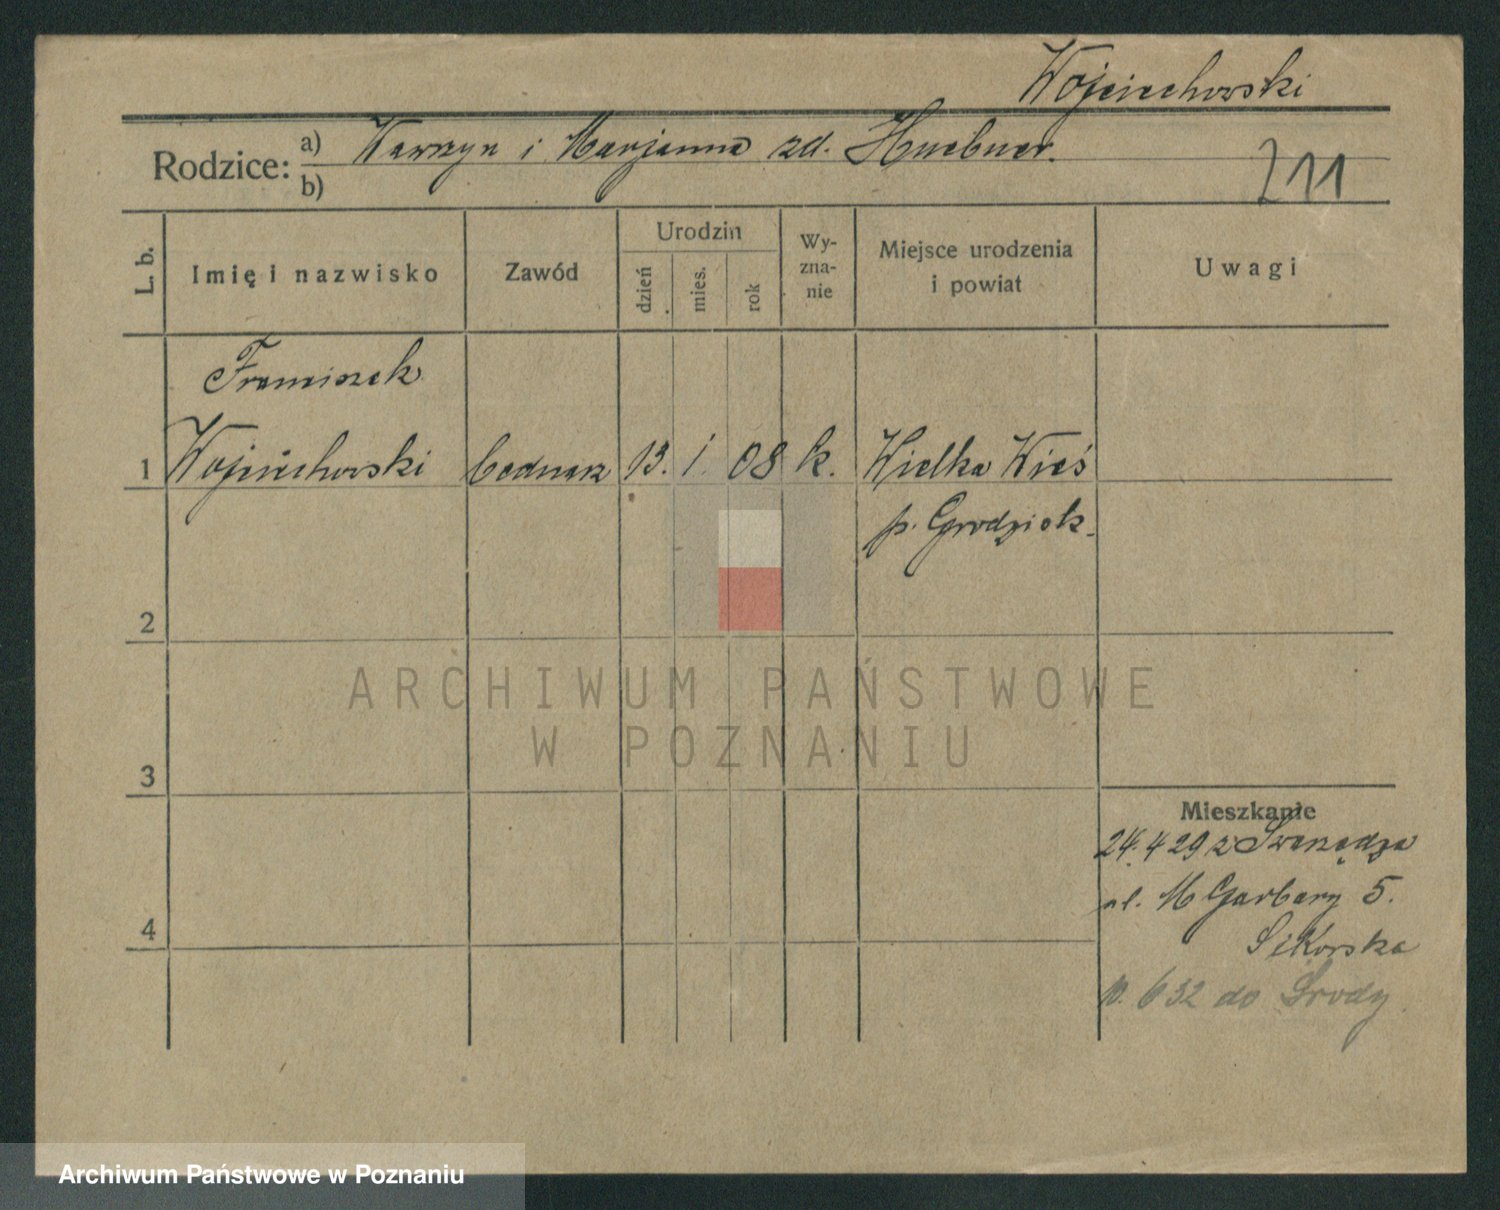 Wojciechowski
Rodzice: a) Wawrzyn i Marjanna zd. Huebner.
b)
211
L. b.
Imię i nazwisko
Zawód
Urodzin
dzień
mies.
rok
Wy-
zna-
nie
Miejsce urodzenia
i powiat
Uwagi
Franciszek
1 Wojciechowski bednarz 13. 1. 08 k. Wielka Wieś
p. Grodzisk.
2
ARCHIWUM PAŃSTWOWE
W POZNANIU
3
Mieszkanie
24. 4 29 z Swarzędza
ul. M Garbary 5.
Sikorska
4
632 do Środy
Archiwum Państwowe w Poznaniu